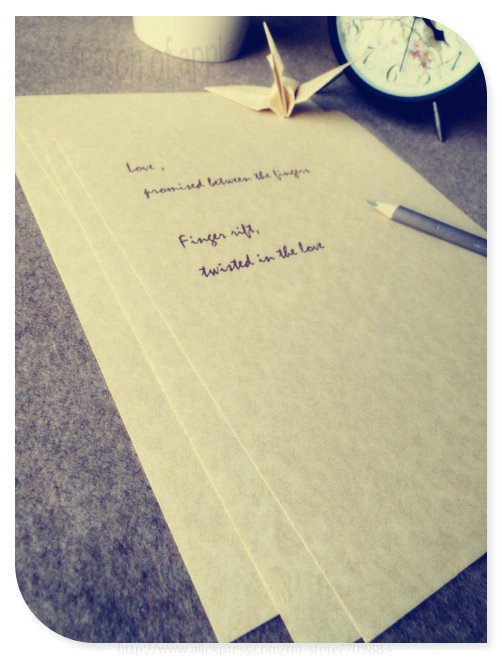 Season of apple
Love ,
promised between the fingers
Finger rift,
twisted in the love
http://www.aliexpress.com/fm-store/709883